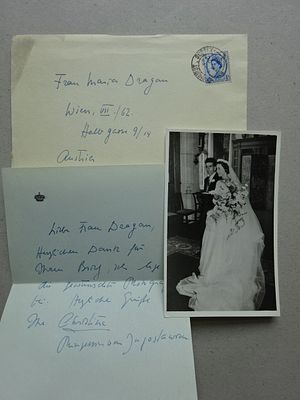 Frau Maria Dragan
Wien, VII./62.
9/14
Austria
Liebe Frau Dragan,
Herzlichen Dank für
Ihren Brief, ich lege
die gewünschte Photographie
bei. Herzliche Grüße
Ihre
Prinzessin von Jugoslawien